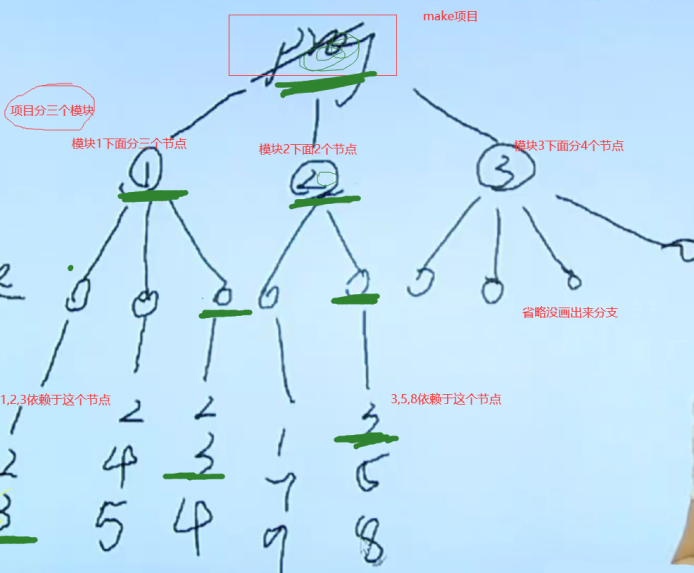 make项目
项目分三个模块
模块1下面分三个节点
模块2下面2个节点
模块3下面分4个节点
1
2
3
省略没画出来分支
1,2,3依赖于这个节点
3,5,8依赖于这个节点
1
2 2 1 3
2 4 3 7
3 5 4 9 8